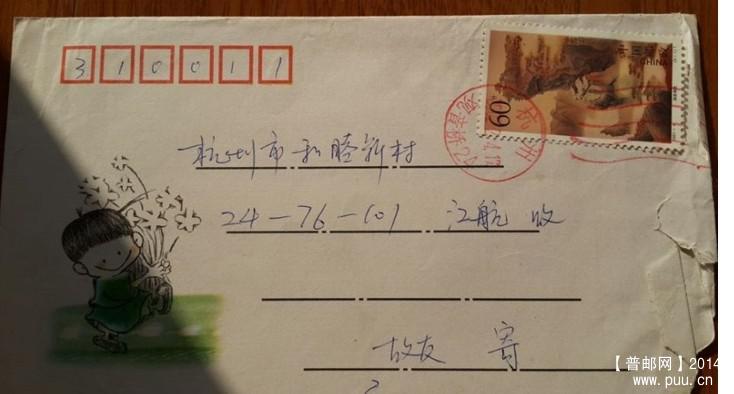 310011
60
CHINA
杭州市和睦新村
24-76-101 江航 收
故友 寄
【普邮网】2014
www.puu.cn